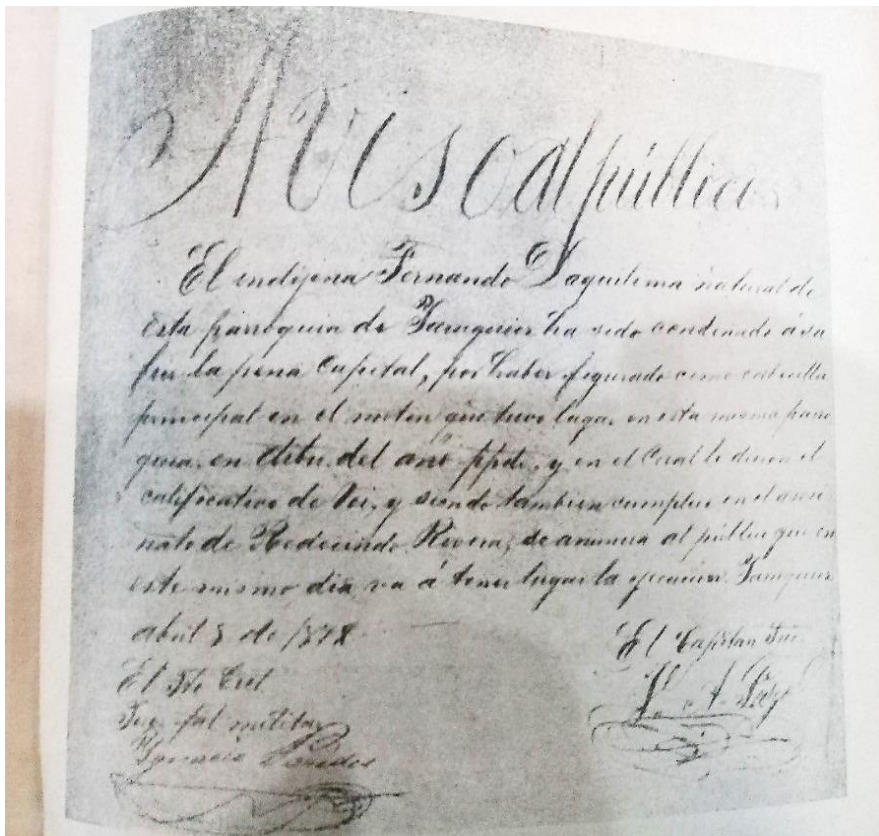 Aviso al público
El indijena Fernando Daquilema natural de
esta parroquia de Yaruquies ha sido condenado á su
frir la pena Capital, por haber figurado como cabecilla
principal en el motin que tuvo lugar en esta misma parro
quia, en del año ppdo, y en el Cual le dieron el
calificativo de Rei, y siendo tambien complice en el asesi
nato de Rudecindo Rivera, se anuncia al público que en
este mismo dia va á tener lugar la ejecucion. Yaruquies
abril 8 de 1872
El Capitan
El Tte Crel
fral militar
Ygnacio Paredes